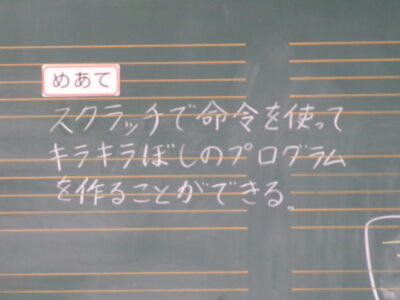 めあて
スクラッチで命令を使って
キラキラぼしのプログラム
を作ることができる。